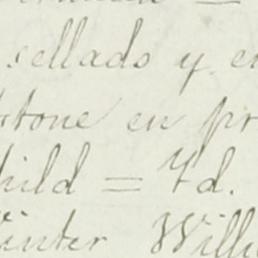 sellado y en
tone en pr
hild = Yd.
inter Willi